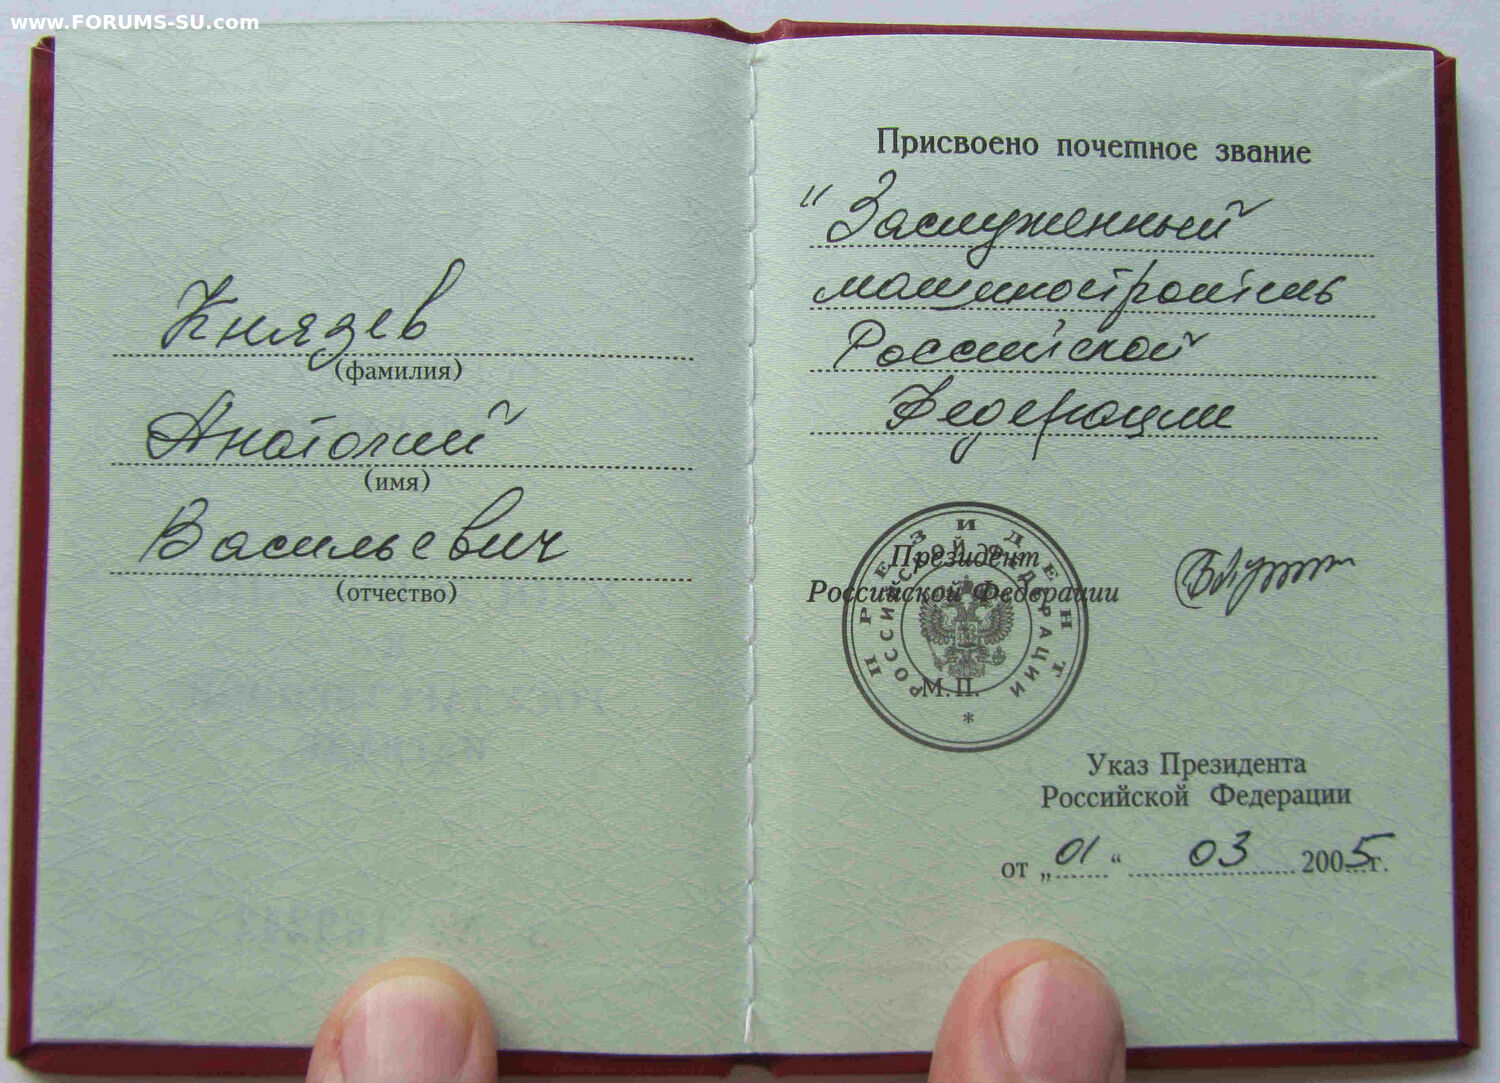 www.FORUMS-SU.com
Князев
(фамилия)
Анатолий
(имя)
Васильевич
(отчество)
Присвоено почетное звание
"Заслуженный
машиностроитель
Российской
Федерации
Президент
Российской Федерации
ПРЕЗИДЕНТ
РОССИЙСКОЙ ФЕДЕРАЦИИ
*
М.П.
Указ Президента
Российской Федерации
от „01“ 03 2005г.